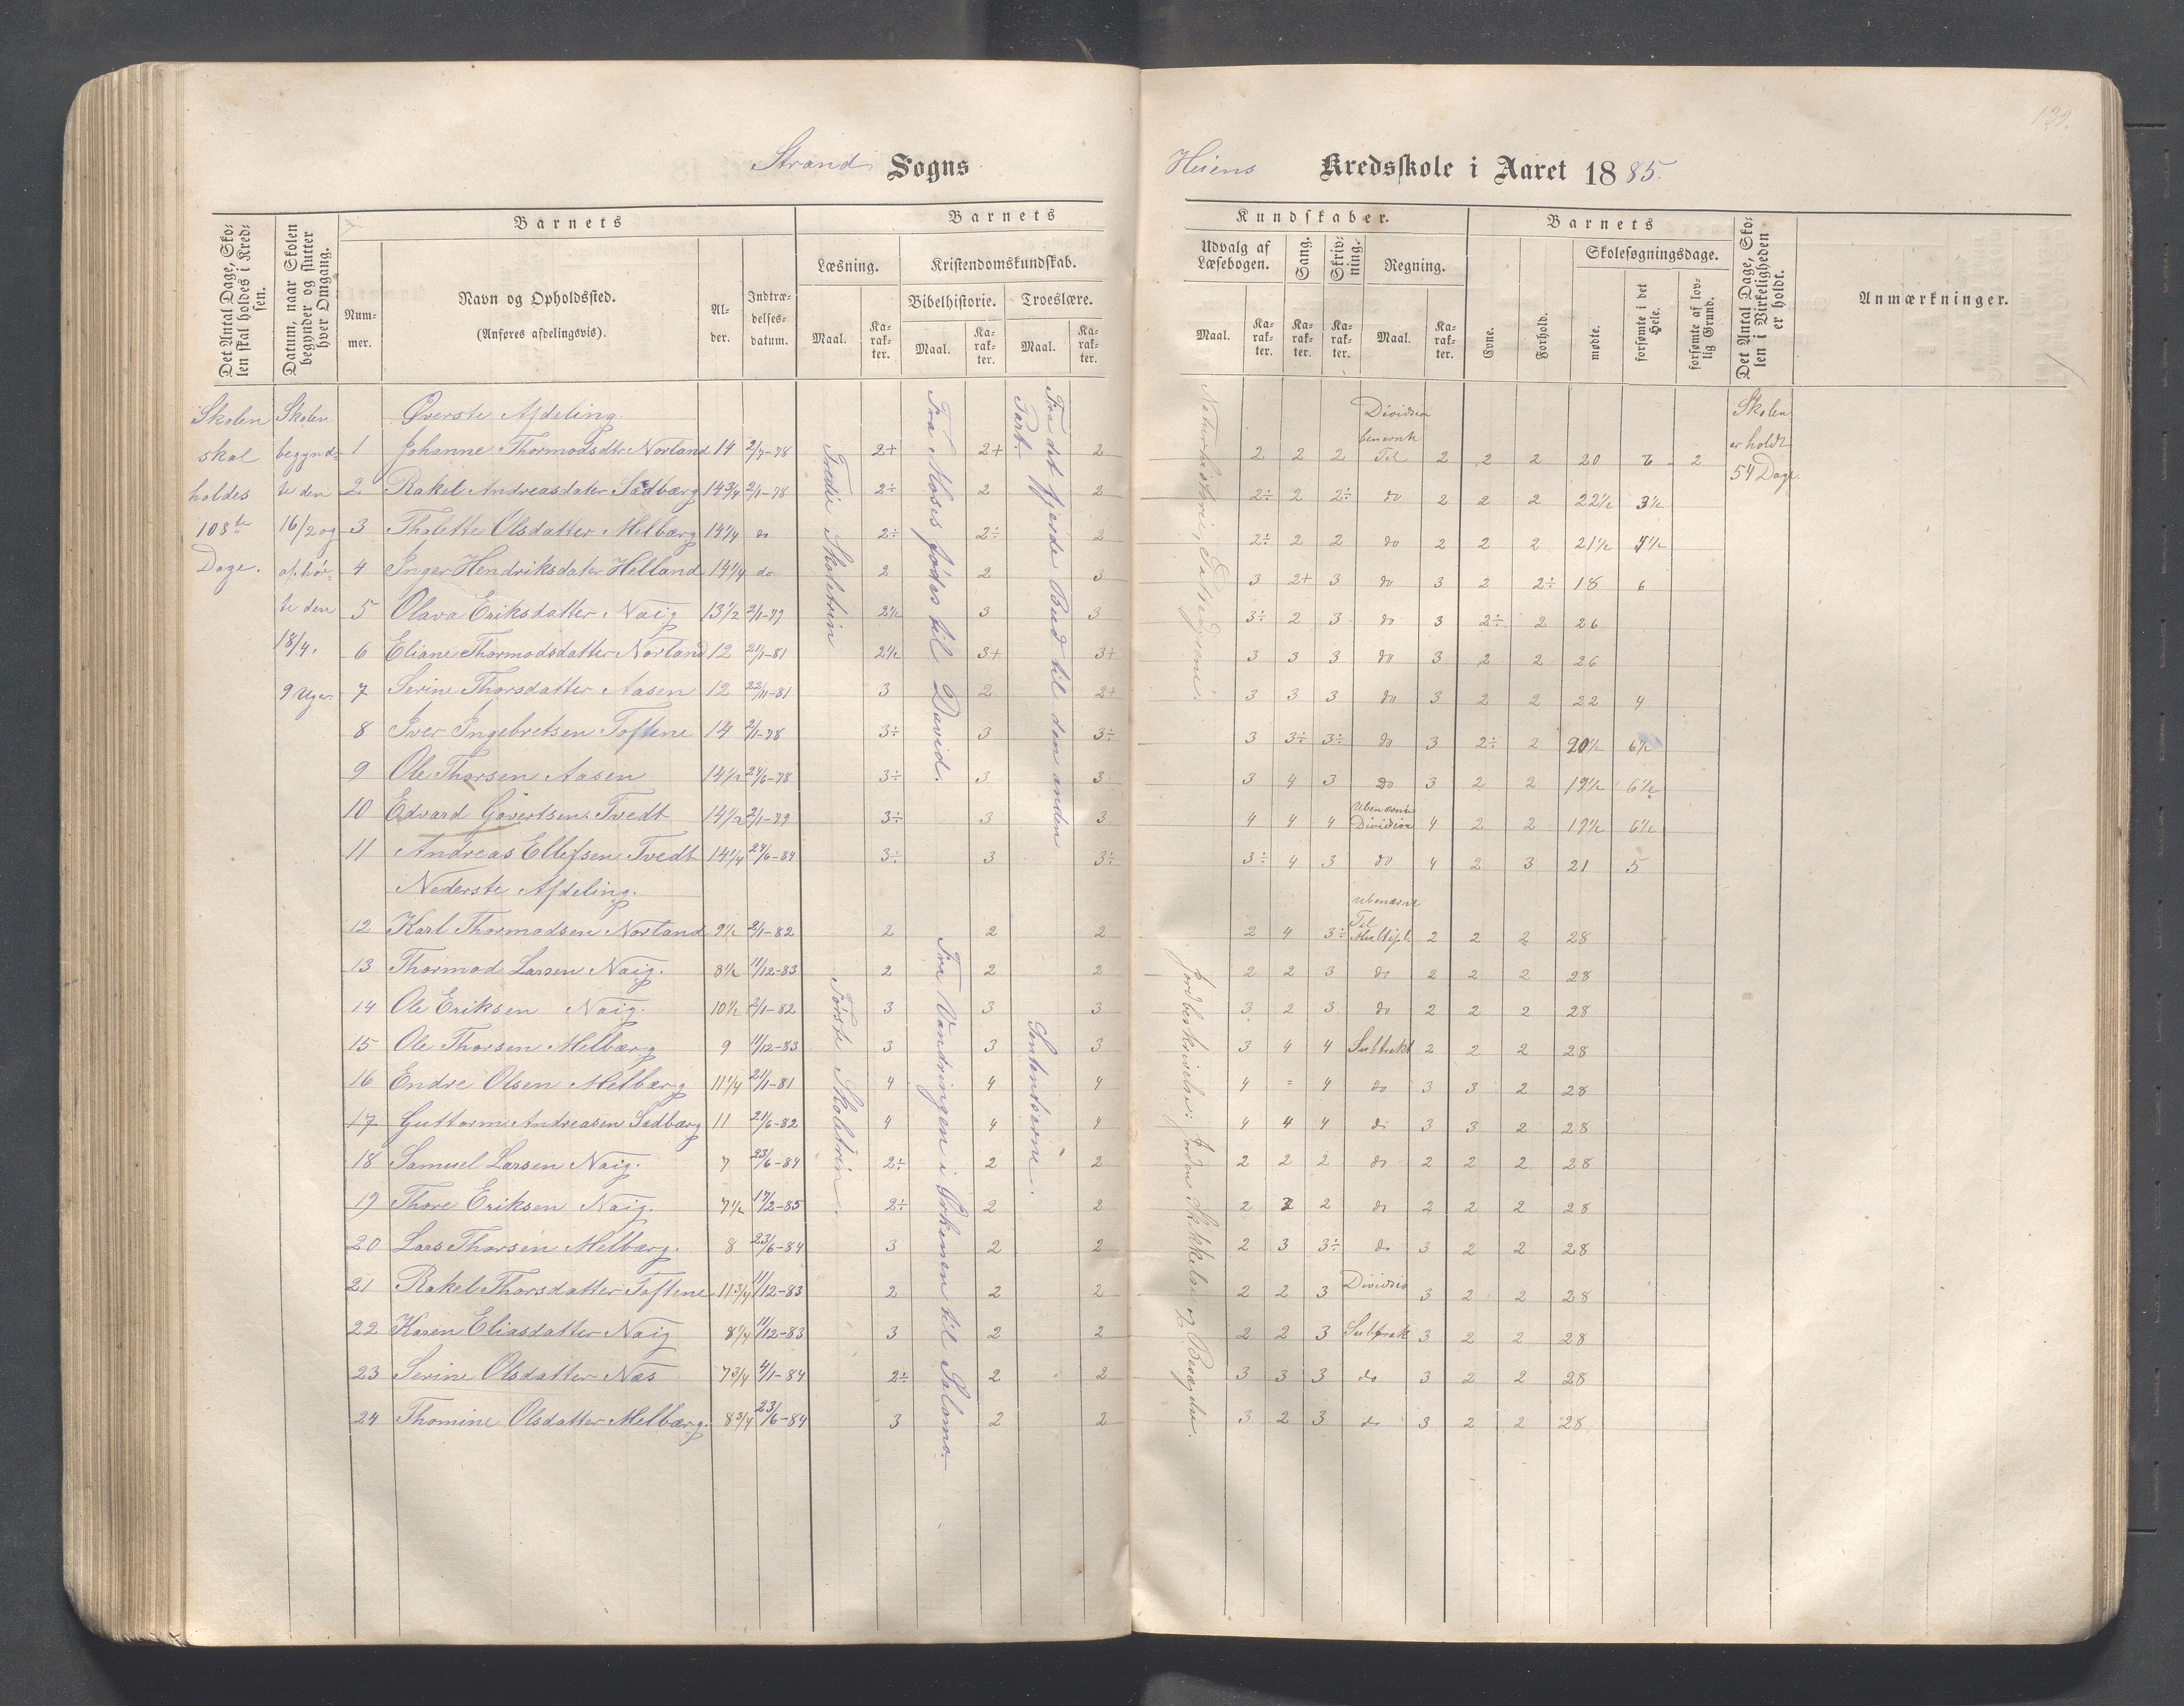 132.
Strand Sogns
Heiens Kredsskole i Aaret 1885.
Det Antal Dage, Skolen skal holdes i Kredsen.
Datum, naar Skolen begynder og slutter hver Omgang.
Barnets
Nummer.
Navn og Opholdssted.
(Anføres afdelingsvis).
Alder.
Indtrædelsesdatum.
Barnets
Læsning.
Kristendomskundskab.
Bibelhistorie. Troeslære.
Maal. Karakter. Maal. Karakter. Maal. Karakter.
Kundskaber.
Udvalg af Læsebogen. Sang. Skrivning. Regning.
Maal. Karakter. Karakter. Karakter. Maal. Karakter.
Barnets
Evne. Forhold.
Skolesøgningsdage.
mødte. forsømte i det Hele. forsømte af lovlig Grund.
Det Antal Dage, Skolen i Virkeligheden er holdt.
Anmærkninger.
Skolen skal holdes 108te Dage.
Skolen begyndte den 16/2 og ophørte den 18/4. 9 Uger.
Skolen er holdt 54 Dage.
Tredie Skoletrin
Fra Moses fødes til David.
Fra det fjerde Bud til den anden Part.
Naturhistorie, Edsedyrene.
Øverste Afdeling.
1 Johanne Thormodsdtr Norland 14 2/7-78 2+ 2+ 2 2 2 2 Division benevnte Tal 2 2 2 20 6 2
2 Rakel Andreasdater Sadbærg 14 3/4 2/1-78 2÷ 2 2 2÷ 2 2÷ do 2 2 2 22 1/2 3 1/2
3 Thalette Olsdatter Melbærg 14 1/4 do 2÷ 2÷ 2 2÷ 2 2 do 2 2 2 21 1/2 4 1/2
4 Inger Hendriksdater Helland 14 1/4 do 2 2 3 3 2+ 3 do 3 2 2÷ 18 6
5 Olava Eriksdatter Naig 13 1/2 2/1-79 2 1/2 3 3 3÷ 2 3 do 3 2÷ 2 26
6 Eliane Thormodsdatter Norland 12 21/1-81 2 1/2 3+ 3+ 3 3 3 do 3 2 2 26
7 Serine Thorsdatter Aasen 12 22/11-81 3 2 2+ 3 3 3 do 3 2 2 22 4
8 Iver Ingebretsen Toftene 14 2/1-78 3÷ 3 3÷ 3 3÷ 3÷ do 3 2÷ 2 20 1/2 6 1/2
9 Ole Thorsen Aasen 14 1/2 24/6-78 3÷ 3 3 3 4 3 do 3 2 2 19 1/2 6 1/2
10 Edvard Govertsen Tvedt 14 1/2 2/1-79 3÷ 3 3 4 4 4 Ubenævnte Division 4 2 2 19 1/2 6 1/2
11 Andreas Ellefsen Tvedt 14 1/4 24/6-84 3÷ 3 3÷ 3÷ 4 3 do 4 2 3 21 5
Nederste Afdeling.
Første Skoletrin.
Fra Vandringen i Ørkenen til Salomo.
Jordbeskrivelse: Jordens Skikkelse og Bevægelse.
12 Karl Thormodsen Norland 9 1/2 2/1-82 2 2 2 2 4 3÷ Ubenævnte Tal Multipl. 2 2 2 28
13 Thormod Larsen Naig. 8 1/2 11/12-83 2 2 2 2 2 3 do 2 2 2 28
14 Ole Eriksen Naig. 10 1/2 2/1-82 3 3 3 3 2 3 do 2 2 2 28
15 Ole Thorsen Melbærg 9 11/12-83 3 3 3 3 4 4 Subtrakt 2 2 2 28
16 Endre Olsen Melbærg 11 1/4 21/1-81 4 4 4 4 = 4 do 3 3 2 28
17 Guttorm Andreasen Sadbærg 11 21/6-82 4 4 4 4 4 4 do 3 3 2 28
18 Samuel Larsen Naig. 7 23/6-84 2÷ 2 2 2 2 2 do 2 2 2 28
19 Thore Eriksen Naig. 7 1/2 17/2-85 2÷ 2 2 2 3 2 do 2 2 2 28
20 Lars Thorsen Melbærg. 8 23/6-84 3 2 2 2 3 3÷ do 3 2 2 28
21 Rakel Thorsdatter Toftene 11 3/4 11/12-83 2 2 2 2 2 3 Divisio 3 2 2 28
22 Karen Eliasdatter Naig 8 1/4 11/12-83 3 2 2 2 2 3 Subtrak 3 2 2 28
23 Serine Olsdatter Næs 7 3/4 4/1-84 2÷ 2 2 3 3 3 do 3 2 2 28
24 Thomine Olsdatter Melbærg. 8 3/4 23/6-84 3 2 2 3 2 3 do 3 2 2 28